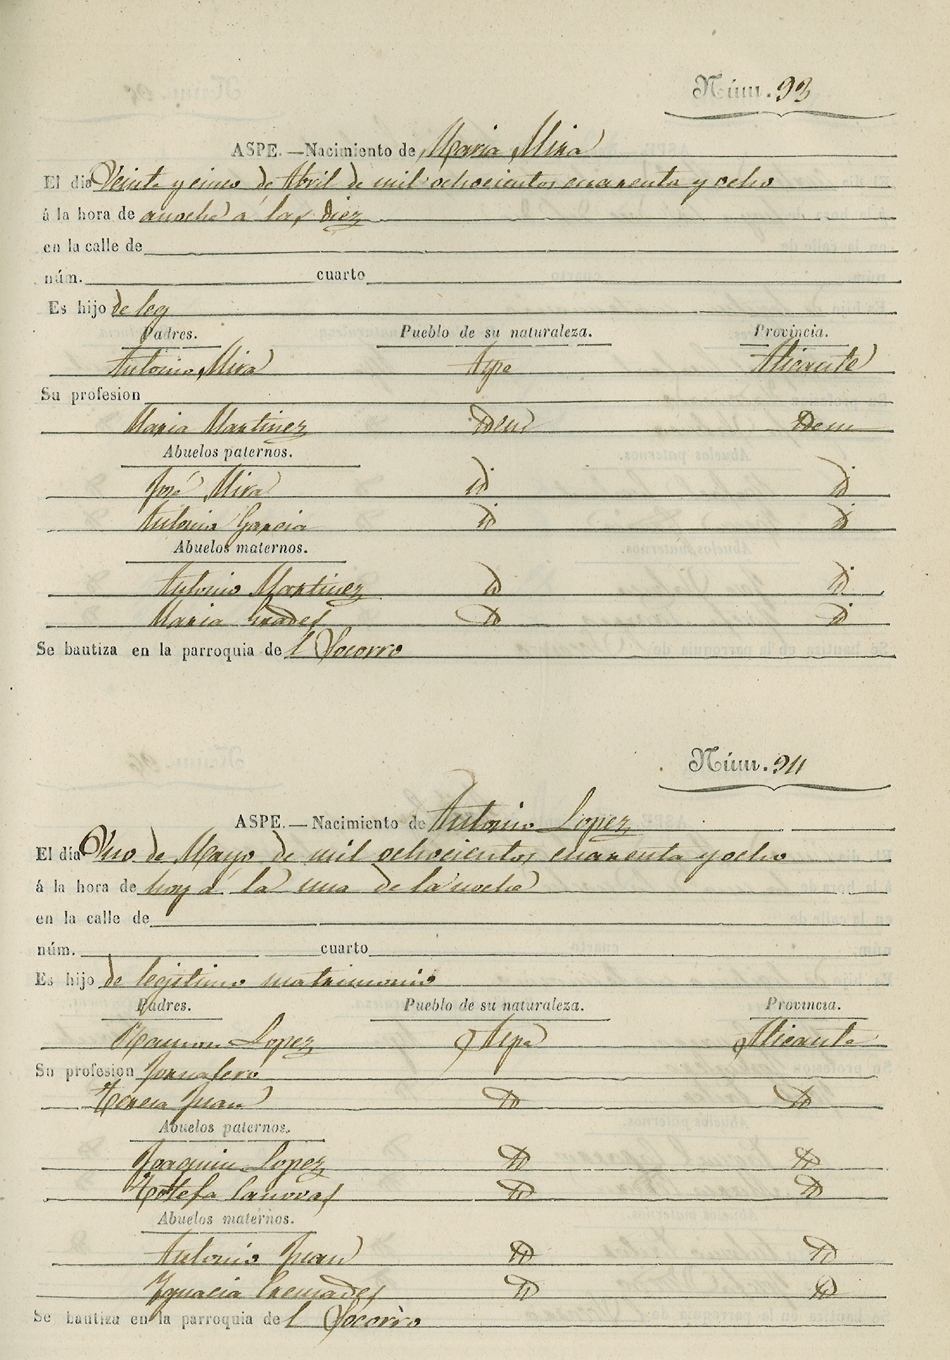 Núm. 93
ASPE.—Nacimiento de Maria Mira
El dia Veinte y cinco de Abril de mil ochocientos cuarenta y ocho
á la hora de anoche a las diez
en la calle de
núm. cuarto
Es hijo de leg
Padres. Pueblo de su naturaleza. Provincia.
Antonio Mira Aspe Alicante
Su profesion
Maria Martinez Idem Idem
Abuelos paternos.
José Mira id id
Antonia Garcia id id
Abuelos maternos.
Antonio Martinez id id
Maria id id
Se bautiza en la parroquia de l Socorro
Núm. 94
ASPE.—Nacimiento de Antonio Lopez
El dia Uno de Mayo de mil ochocientos cuarenta y ocho
á la hora de hoy a la una de la noche
en la calle de
núm. cuarto
Es hijo de legitimo matrimonio
Padres. Pueblo de su naturaleza. Provincia.
Ramon Lopez Aspe Alicante
Su profesion Jornalero
Teresa Juan id id
Abuelos paternos.
Joaquin Lopez id id
Josefa Canovas id id
Abuelos maternos.
Antonio Juan id id
Ignacia Cremades id id
Se bautiza en la parroquia de l Socorro